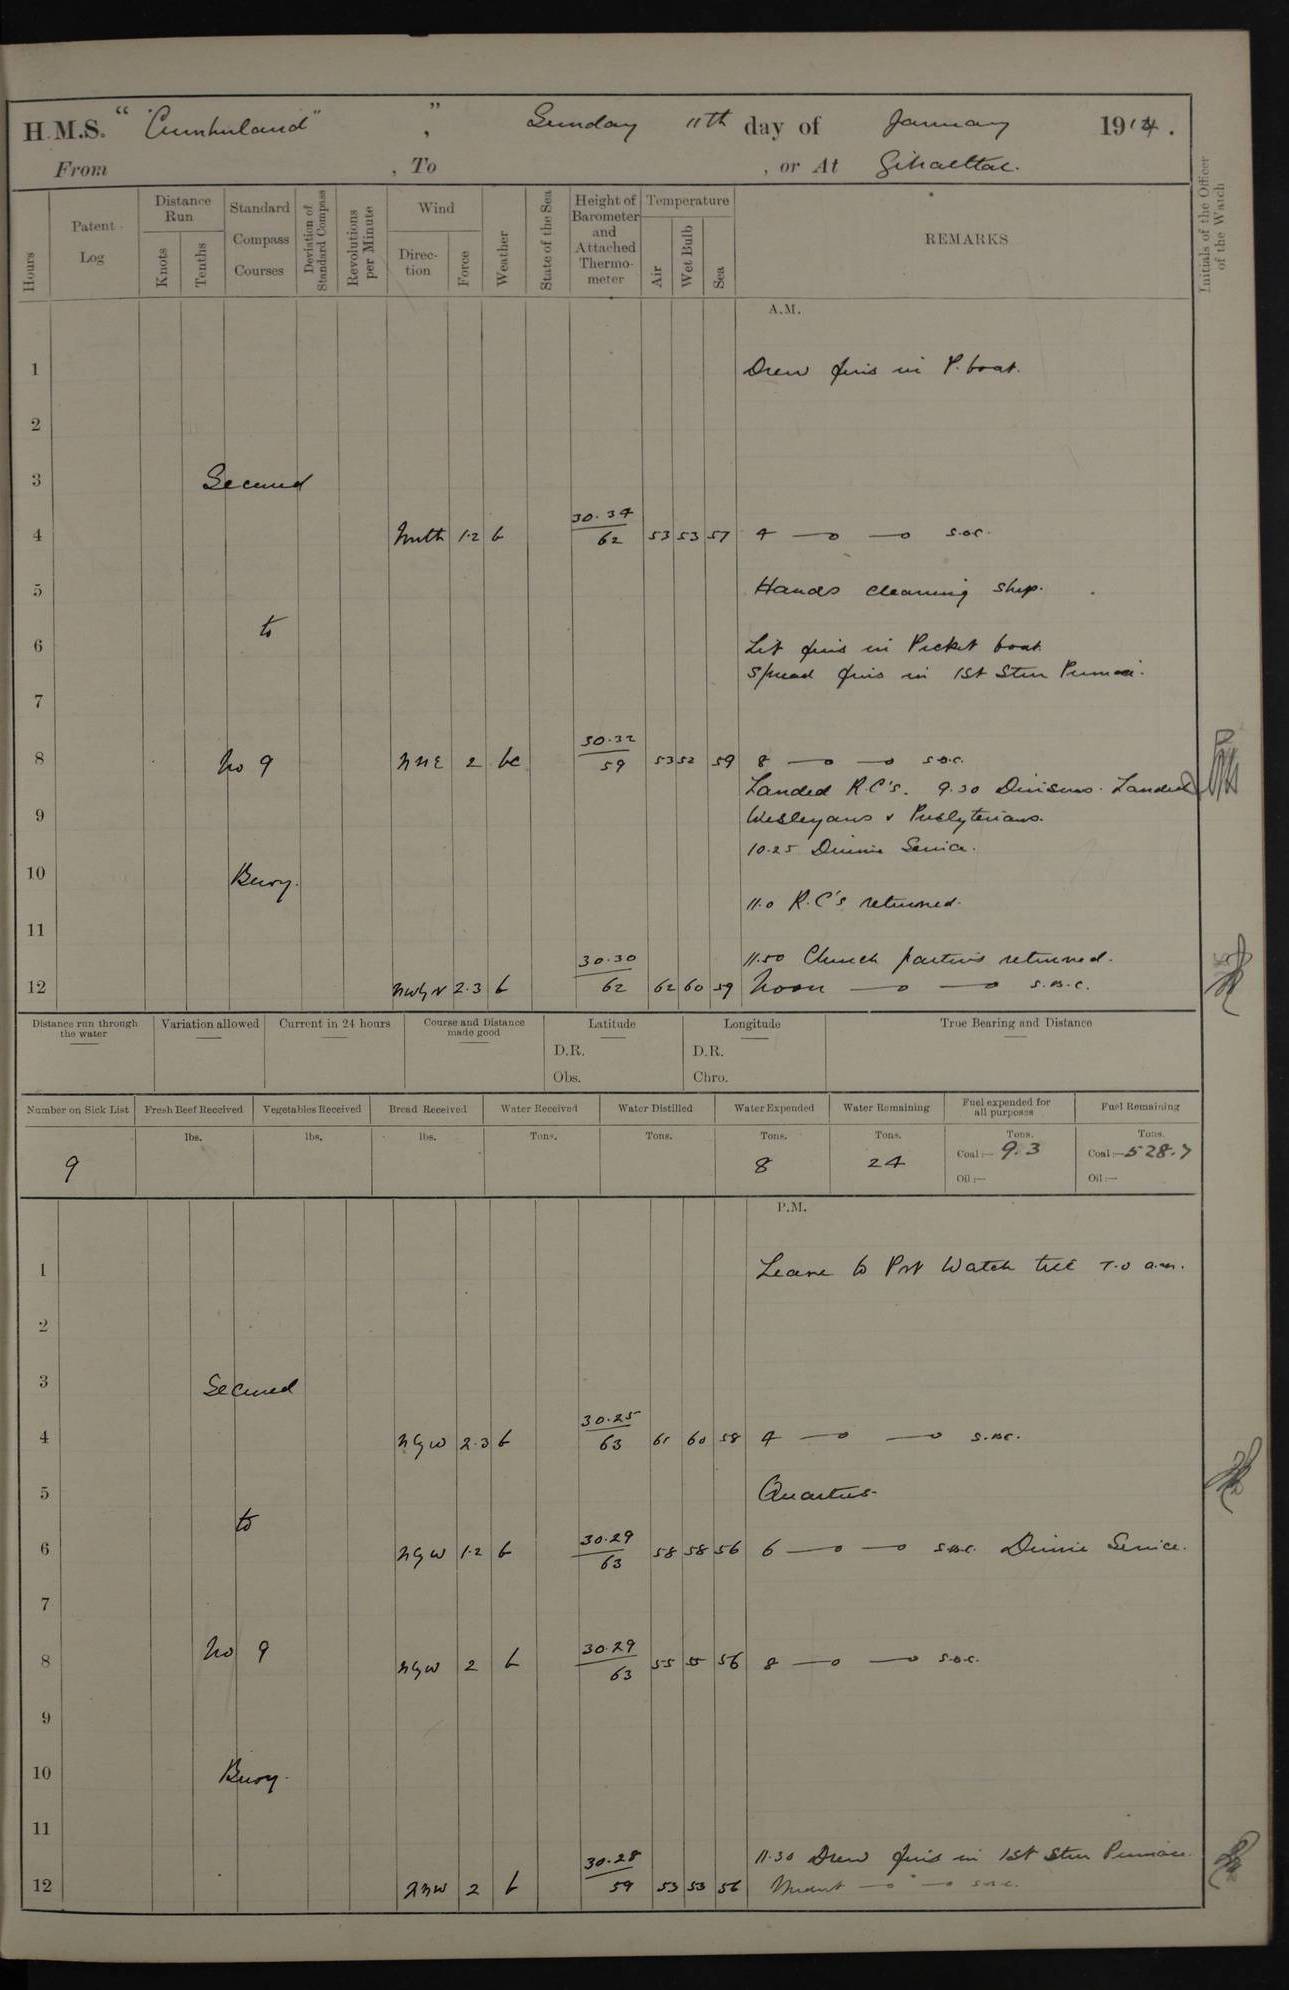 H.M.S. "Cumberland" , Sunday 11th day of January 1914.
From , To , or At Gibraltar.
Hours
Patent Log
Distance Run
Knots
Tenths
Standard Compass Courses
Deviation of Standard Compass
Revolutions per Minute
Wind
Direction
Force
Weather
State of the Sea
Height of Barometer and Attached Thermometer
Temperature
Air
Wet Bulb
Sea
REMARKS
Initials of the Officer of the Watch
A.M.
1 Drew fires in P. boat.
2
3 Secured
4 North 1.2 b 30.34/62 53 53 57 4 s.b.c.
5 Hands cleaning ship.
to
6 Lit fires in Picket boat.
Spread fires in 1st Stm Pinnace.
7
8 No 9 NNE 2 bc 30.32/59 53 52 59 8 s.b.c.
Landed R.C's. 9.30 Divisions. Landed
9 Wesleyans & Presbyterians.
10.25 Divine Service.
10 Buoy.
11.0 R.C's returned.
11
11.50 Church parties returned.
12 NWbyN 2.3 b 30.30/62 62 60 59 Noon s.b.c.
Distance run through the water
Variation allowed
Current in 24 hours
Course and Distance made good
Latitude
D.R.
Obs.
Longitude
D.R.
Chro.
True Bearing and Distance
Number on Sick List
Fresh Beef Received
Vegetables Received
Bread Received
Water Received
Water Distilled
Water Expended
Water Remaining
Fuel expended for all purposes
Fuel Remaining
lbs. lbs. lbs. Tons. Tons. Tons. Tons. Tons. Tons.
9 8 24 Coal:— 9.3 Coal:— 528.7
Oil:— Oil:—
P.M.
1 Leave to Port Watch till 7.0 a.m.
2
3 Secured
4 NbyW 2.3 b 30.25/63 61 60 58 4 s.b.c.
5 Quarters.
to
6 NbyW 1.2 b 30.29/63 58 58 56 6 s.b.c. Divine Service.
7
8 No 9 NbyW 2 b 30.29/63 55 55 56 8 s.b.c.
9
10 Buoy.
11
11.30 Drew fires in 1st Stm Pinnace.
12 NNW 2 b 30.28/59 53 53 56 Midnt s.b.c.